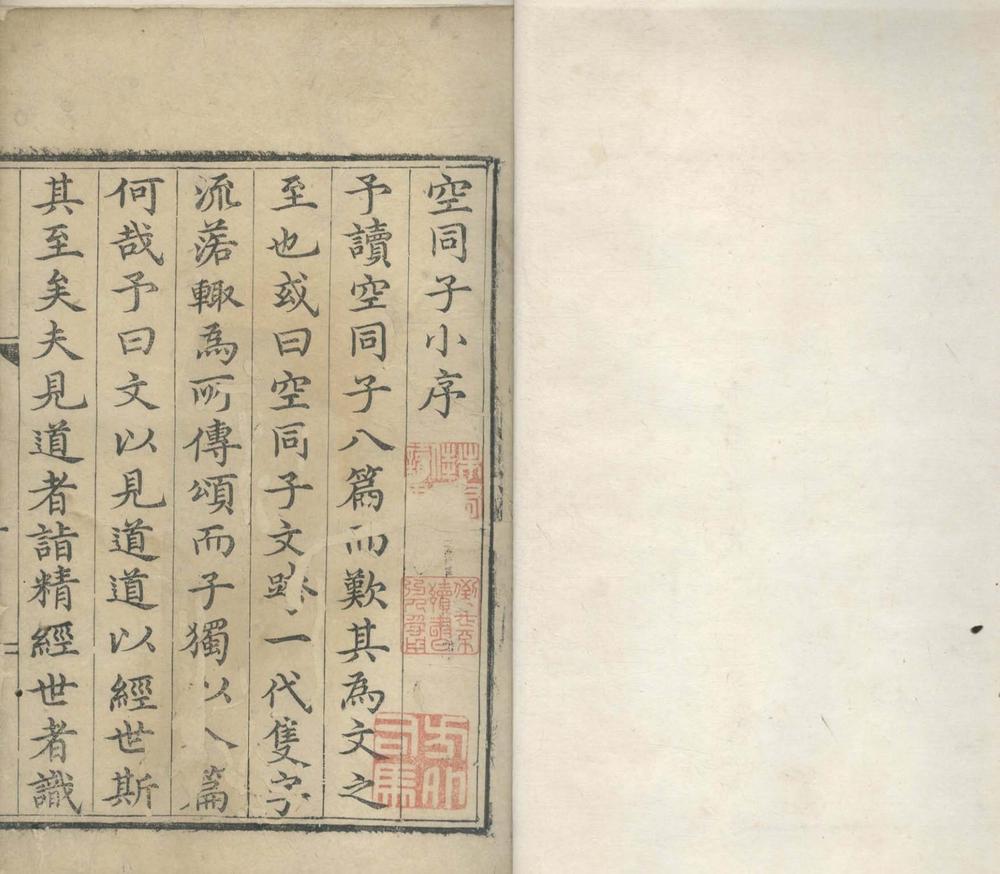 空同子小序
予讀空同子八篇而歎其為文之
至也或曰空同子文跨一代隻字
流落輙為所傳頌而子獨以八篇
何哉予曰文以見道道以經世斯
其至矣夫見道者詣精經世者識